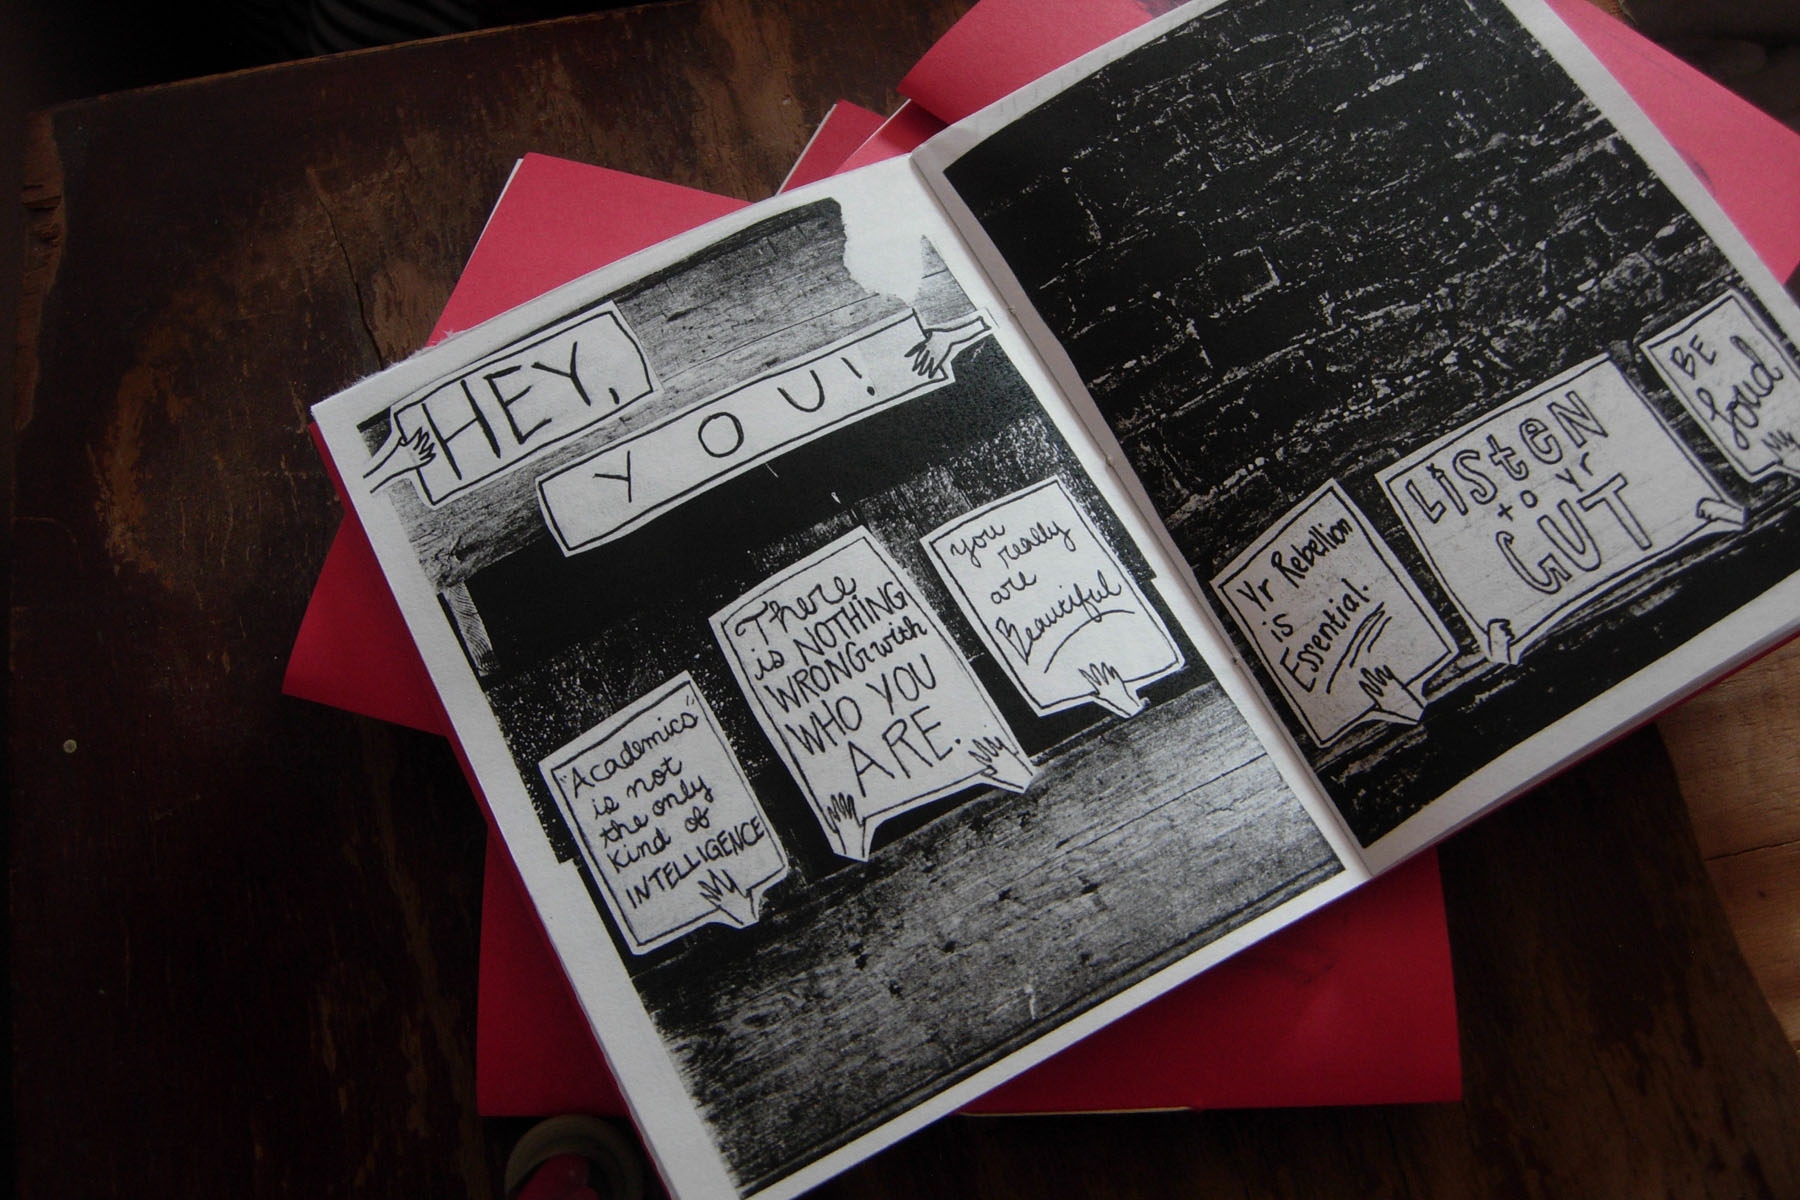 HEY,
YOU!
"Academics"
is not
the only
kind of
INTELLIGENCE
There
is NOTHING
WRONG with
WHO YOU
ARE.
you
really
are
Beautiful
Yr Rebellion
is
Essential.
LiSteN
to yr
GUT
BE
Loud